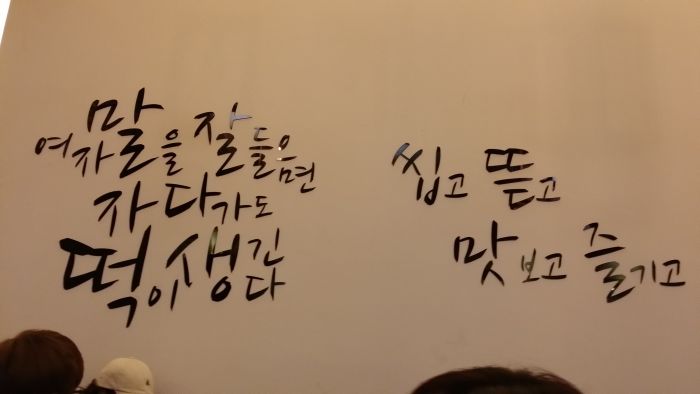 여자 말을 잘 들으면
자다가도
떡이 생긴다
씹고 뜯고
맛보고 즐기고